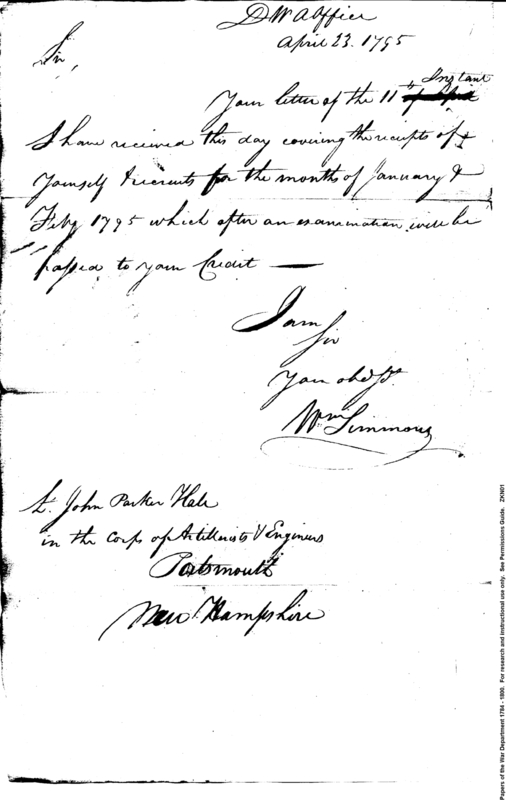 D W A Office
April 23. 1795
Sir,
Your letter of the 11th Instant
I have received this day covering the receipts of
Yourself & recruits for the months of January &
Feby 1795 which after an examination will be
passed to your Credit —
I am
Sir
Your obed St.
Wm Simmons
Lt. John Parker Hale
in the Corps of Artillerists & Engineers
Portsmouth
New Hampshire
Papers of the War Department 1784 - 1800. For research and instructional use only. See Permissions Guide. ZKN01